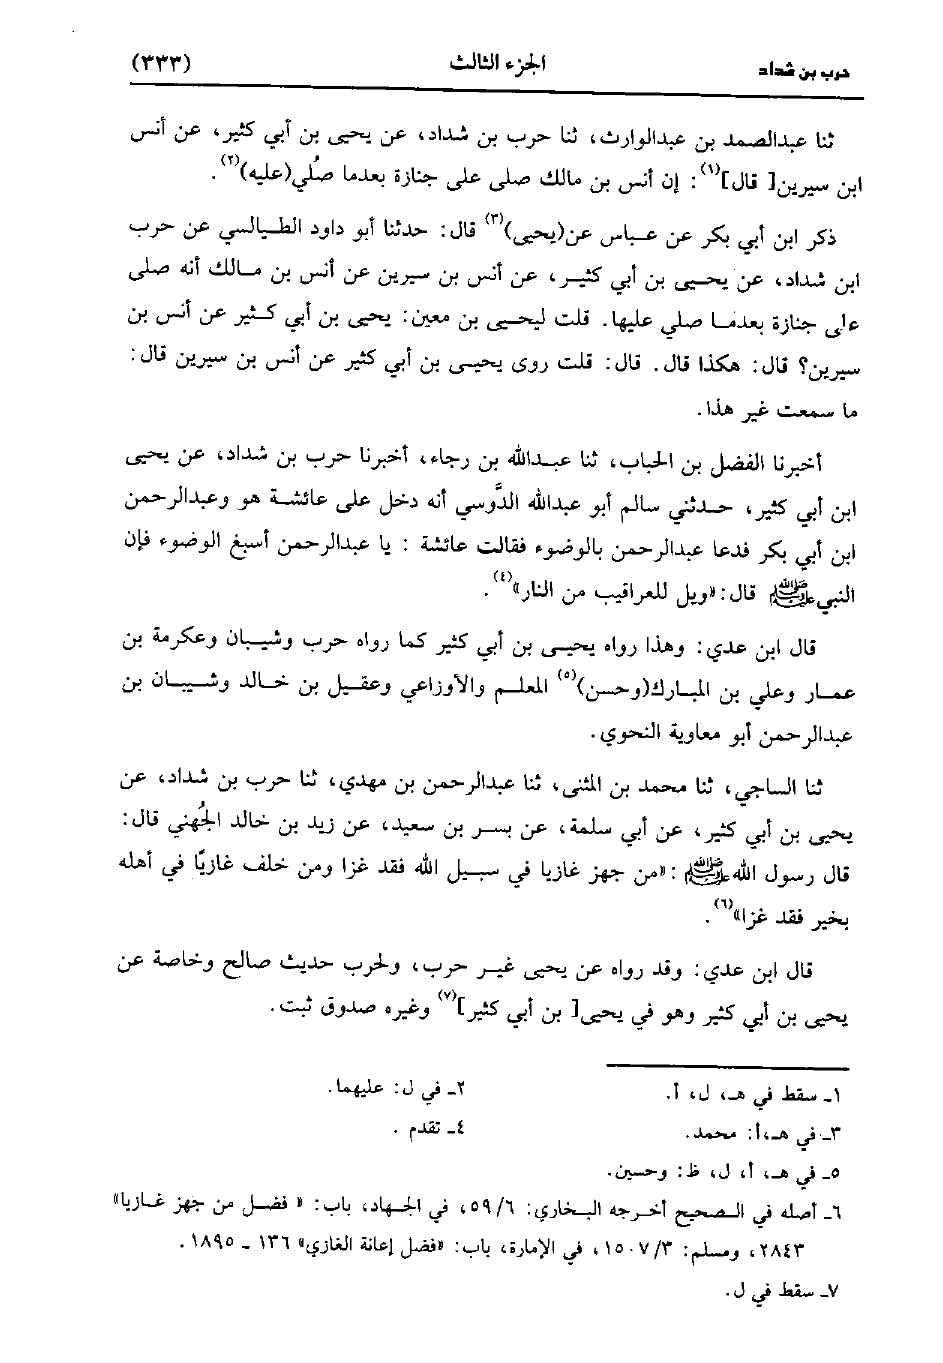 حرب بن شداد
الجزء الثالث
(٣٣٣)
ثنا عبدالصمد بن عبدالوارث، ثنا حرب بن شداد، عن يحيى بن أبي كثير، عن أنس
ابن سيرين[ قال](١): إن أنس بن مالك صلى على جنازة بعدما صُلي(عليه)(٢).
ذكر ابن أبي بكر عن عباس عن(يحيى)(٣) قال: حدثنا أبو داود الطيالسي عن حرب
ابن شداد، عن يحيى بن أبي كثير، عن أنس بن سيرين عن أنس بن مالك أنه صلى
على جنازة بعدما صلي عليها. قلت ليحيى بن معين: يحيى بن أبي كثير عن أنس بن
سيرين؟ قال: هكذا قال. قال: قلت روى يحيى بن أبي كثير عن أنس بن سيرين قال:
ما سمعت غير هذا.
أخبرنا الفضل بن الحباب، ثنا عبدالله بن رجاء، أخبرنا حرب بن شداد، عن يحيى
ابن أبي كثير، حدثني سالم أبو عبدالله الدَّوسي أنه دخل على عائشة هو وعبدالرحمن
ابن أبي بكر فدعا عبدالرحمن بالوضوء فقالت عائشة : يا عبدالرحمن أسبغ الوضوء فإن
النبي ﷺ قال: «ويل للعراقيب من النار»(٤).
قال ابن عدي: وهذا رواه يحيى بن أبي كثير كما رواه حرب وشيبان وعكرمة بن
عمار وعلي بن المبارك(وحسن)(٥) المعلم والأوزاعي وعقيل بن خالد وشيبان بن
عبدالرحمن أبو معاوية النحوي.
ثنا الساجي، ثنا محمد بن المثنى، ثنا عبدالرحمن بن مهدي، ثنا حرب بن شداد، عن
يحيى بن أبي كثير، عن أبي سلمة، عن بسر بن سعيد، عن زيد بن خالد الجُهني قال:
قال رسول الله ﷺ : «من جهز غازيا في سبيل الله فقد غزا ومن خلف غازيًا في أهله
بخير فقد غزا»(٦).
قال ابن عدي: وقد رواه عن يحيى غير حرب، ولحرب حديث صالح وخاصة عن
يحيى بن أبي كثير وهو في يحيى[ بن أبي كثير](٧) وغيره صدوق ثبت.
١ـ سقط في هـ، ل، أ.
٢ـ في ل: عليهما.
٣ـ في هـ،أ: محمد.
٤ـ تقدم .
٥ـ في هـ، أ، ل، ظ: وحسين.
٦ـ أصله في الصحيح أخرجه البخاري: ٥٩/٦، في الجهاد، باب: « فضل من جهز غازيا»
٢٨٤٣، ومسلم: ١٥٠٧/٣، في الإمارة، باب: «فضل إعانة الغازي» ١٣٦ ـ ١٨٩٥ .
٧ـ سقط في ل.